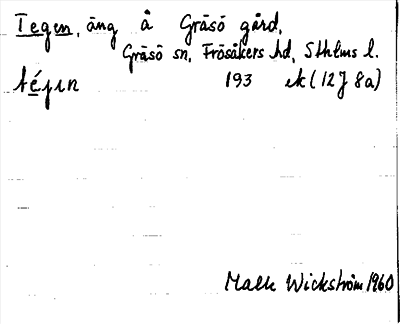 Tegen, äng å Gräsö gård,
Gräsö sn, Frösåkers hd, Sthlms l.
193 ek (12J 8a)
Wickström 1960